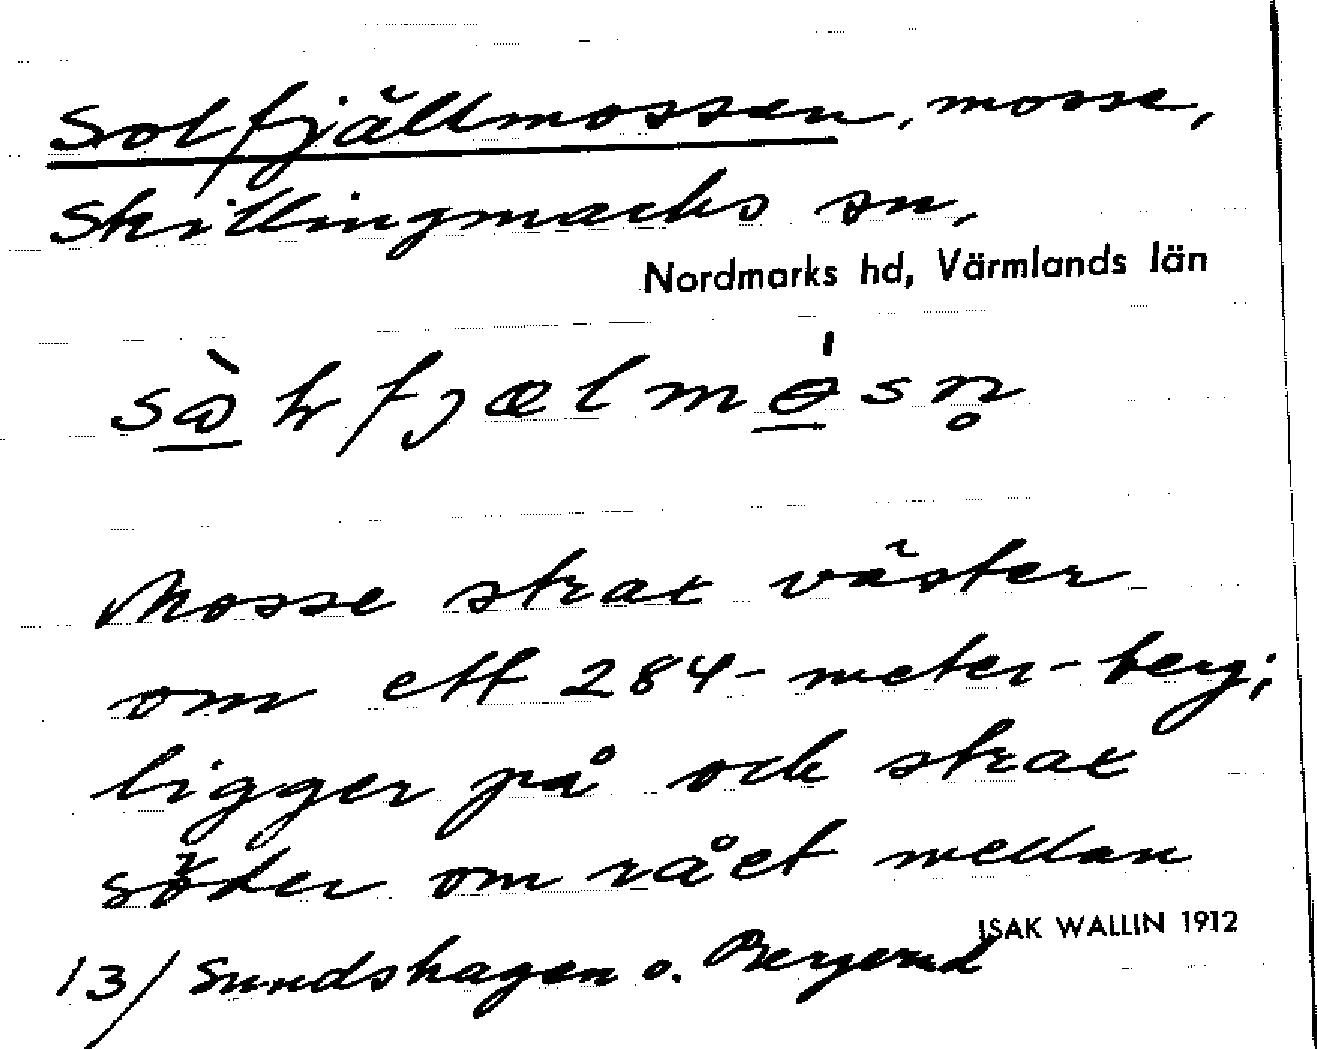 Solfjällmossen, mosse,
Skillingmarks sn,
Nordmarks hd, Värmlands län
Mosse strax väster
om ett 284-meter-berg;
ligger på och strax
söder om rået mellan
ISAK WALLIN 1912
13/ Sundshagen o. Bergerud